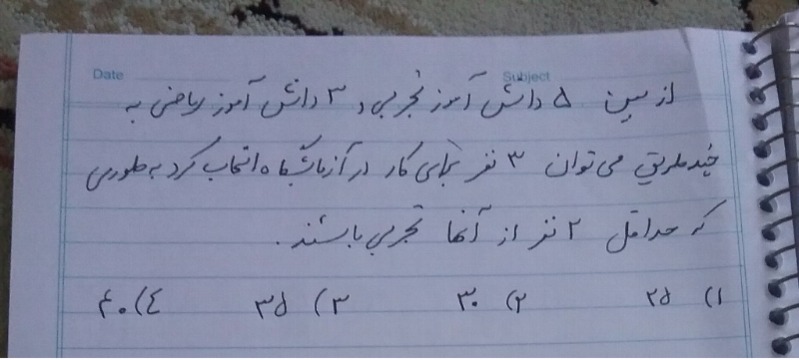 Date Subject
از بین ۵ دانش آموز تجربی و ۳ دانش آموز ریاضی به
چند طریق می توان ۳ نفر برای کار در آزمایشگاه انتخاب کرد به طوری
که حداقل ۲ نفر از آنها تجربی باشند.
۱) ۲۵ ۲) ۳۰ ۳) ۳۵ ۴) ۴۰